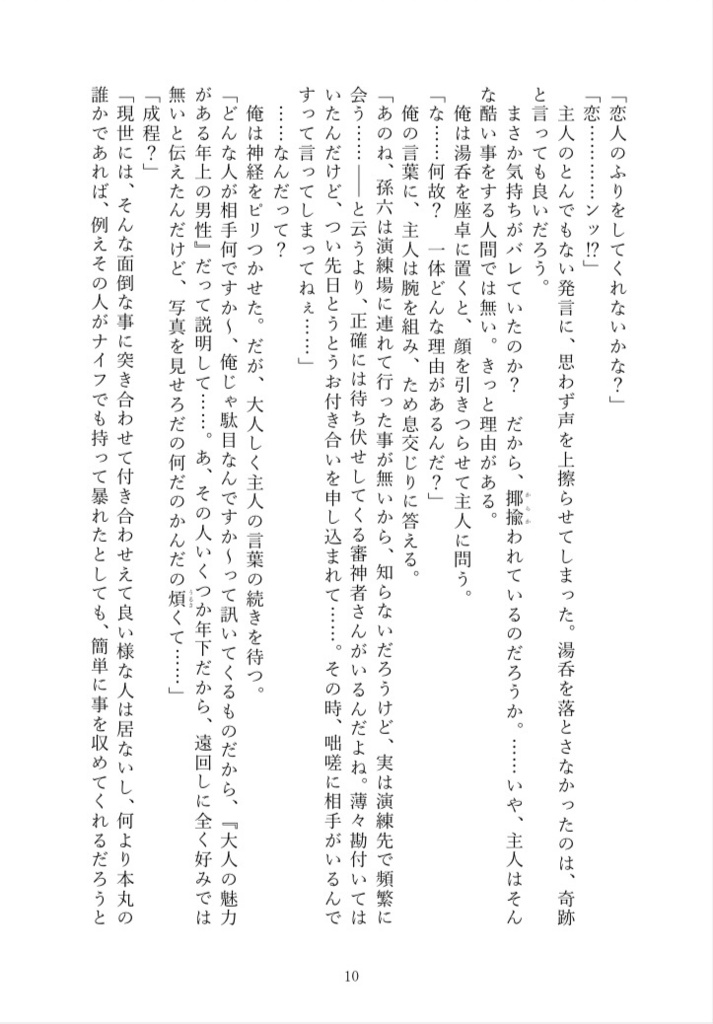 「恋人のふりをしてくれないかな？」
「恋…………ンッ⁉」
　主人のとんでもない発言に、思わず声を上擦らせてしまった。湯呑を落とさなかったのは、奇跡
と言っても良いだろう。
　まさか気持ちがバレていたのか？　だから、揶揄われているのだろうか。……いや、主人はそん
からか
な酷い事をする人間では無い。きっと理由がある。
　俺は湯呑を座卓に置くと、顔を引きつらせて主人に問う。
「な……何故？　一体どんな理由があるんだ？」
　俺の言葉に、主人は腕を組み、ため息交じりに答える。
「あのね、孫六は演練場に連れて行った事が無いから、知らないだろうけど、実は演練先で頻繁に
会う……――と云うより、正確には待ち伏せしてくる審神者さんがいるんだよね。薄々勘付いては
いたんだけど、つい先日とうとうお付き合いを申し込まれて……。その時、咄嗟に相手がいるんで
すって言ってしまってねぇ……」
　……なんだって？
　俺は神経をピリつかせた。だが、大人しく主人の言葉の続きを待つ。
「どんな人が相手何ですか～、俺じゃ駄目なんですか～って訊いてくるものだから、『大人の魅力
がある年上の男性』だって説明して……。あ、その人いくつか年下だから、遠回しに全く好みでは
無いと伝えたんだけど、写真を見せろだの何だのかんだの煩くて……」
うるさ
「成程？」
「現世には、そんな面倒な事に突き合わせて付き合わせえて良い様な人は居ないし、何より本丸の
誰かであれば、例えその人がナイフでも持って暴れたとしても、簡単に事を収めてくれるだろうと
10